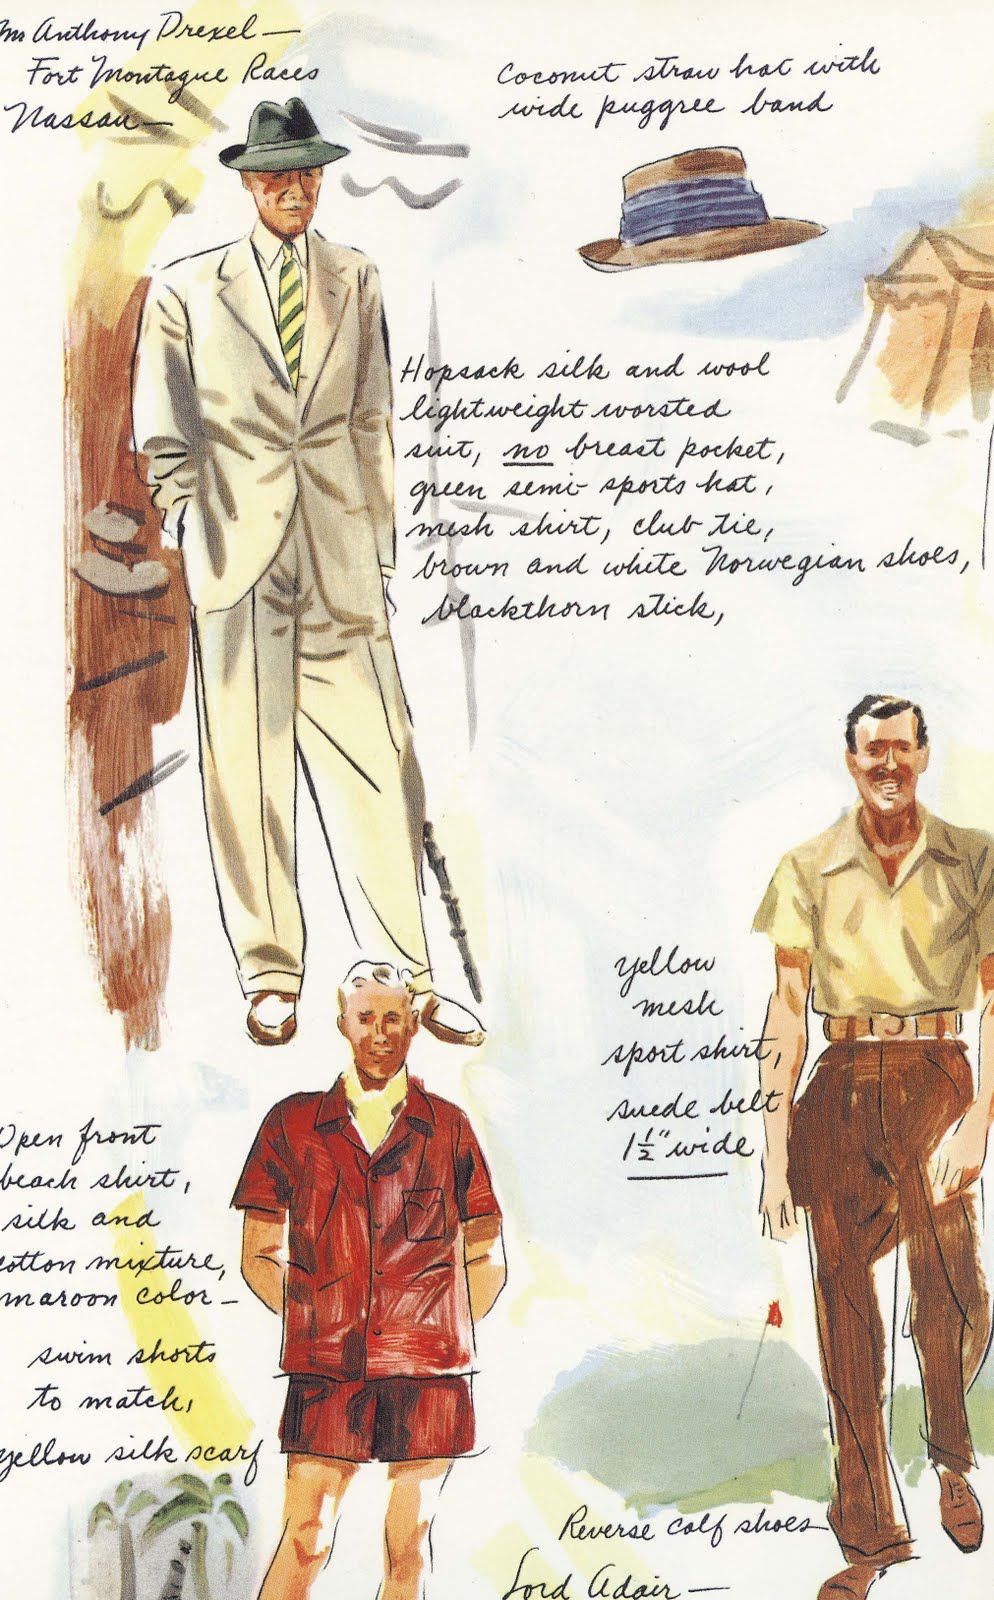 Mr Anthony Drexel —
Fort Montague Races
Nassau —
Coconut straw hat with
wide puggree band
Hopsack silk and wool
lightweight worsted
suit, no breast pocket,
green semi-sports hat,
mesh shirt, club tie,
brown and white Norwegian shoes,
blackthorn stick,
yellow
mesh
sport shirt,
suede belt
1½" wide
Open front
beach shirt,
silk and
cotton mixture,
maroon color —
swim shorts
to match,
yellow silk scarf
Reverse calf shoes
Lord Adair —